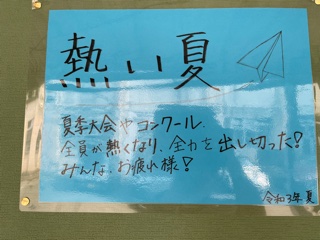 熱い夏
夏季大会やコンクール.
全員が熱くなり、全力を出し切った!
みんな、お疲れ様!
令和3年 夏